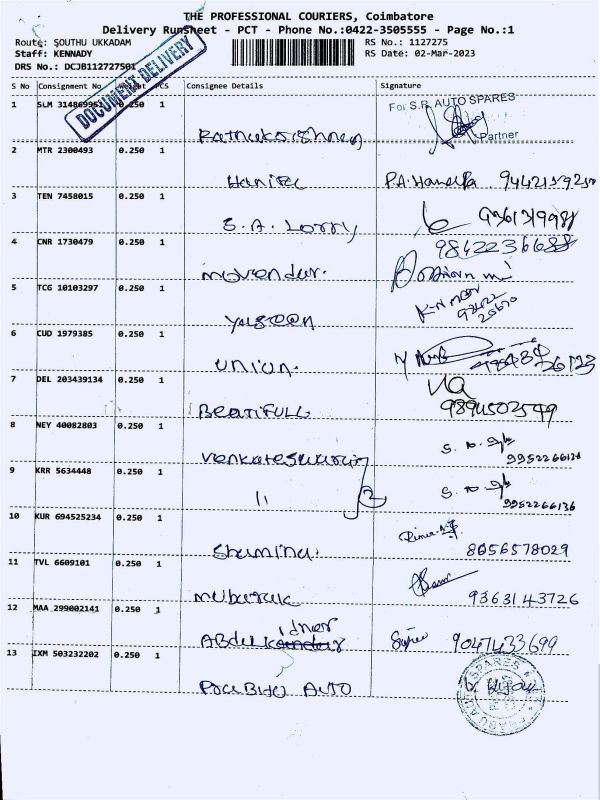 THE PROFESSIONAL COURIERS, Coimbatore
Delivery RunSheet - PCT - Phone No.:0422-3505555 - Page No.:1
Route: SOUTHU UKKADAM
RS No.: 1127275
Staff: KENNADY
RS Date: 02-Mar-2023
DRS No.: DCJB112727501
DOCUMENT DELIVERY
S No Consignment No Weight PCS Consignee Details Signature
1 SLM 314869951 0.250 1
For S.R. AUTO SPARES
Partner
2 MTR 2300493 0.250 1
Hanifa P.A. Haneefa
3 TEN 7458015 0.250 1
S.A. Lorry
4 CNR 1730479 0.250 1
9842236688
5 TCG 10103297 0.250 1
6 CUD 1979385 0.250 1
union.
7 DEL 203439134 0.250 1
BEATIFULL 9894502549
8 NEY 40082803 0.250 1
9952266136
9 KRR 5634448 0.250 1
11 9952266136
10 KUR 694525234 0.250 1
Shamina. 8056578029
11 TVL 6609101 0.250 1
mubarak 9363143726
12 MAA 299002141 0.250 1
Abdul 9047433699
13 IXM 503232202 0.250 1
AUTO